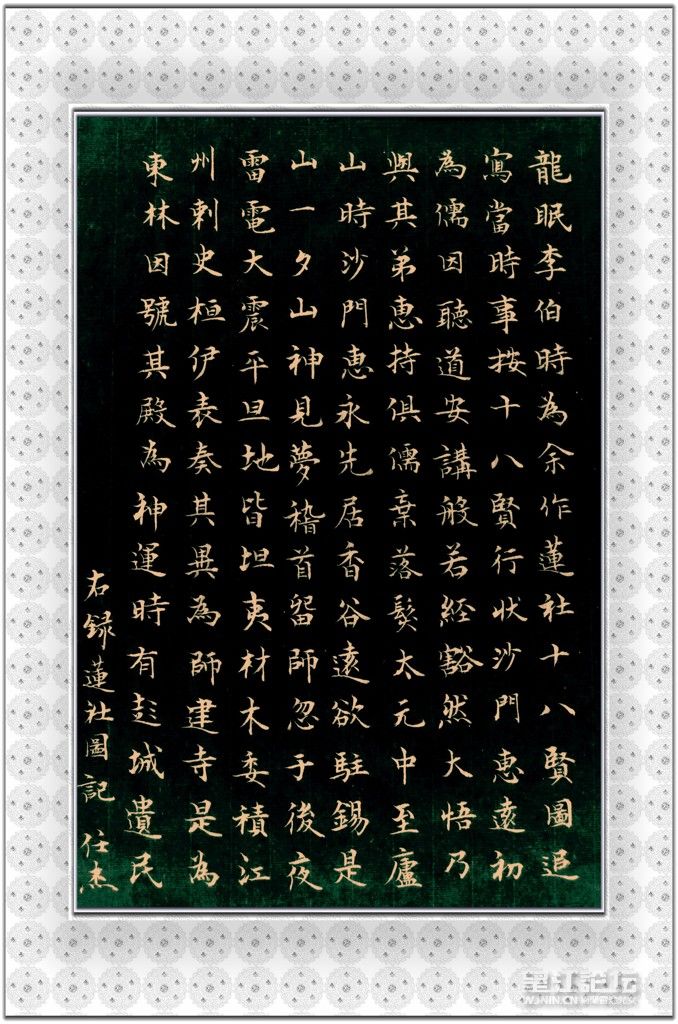 龍眠李伯時為余作蓮社十八賢圖追
寫當時事按十八賢行狀沙門惠遠初
為儒因聽道安講般若經豁然大悟乃
與其弟惠持俱儒棄落髮太元中至廬
山時沙門惠永先居香谷遠欲駐錫是
山一夕山神見夢稽首留師忽于後夜
雷電大震平旦地皆坦夷材木委積江
州刺史桓伊表奏其異為師建寺是為
東林因號其殿為神運時有彭城遺民
右録蓮社圖記 任杰
望江論坛
WJNIN.CN